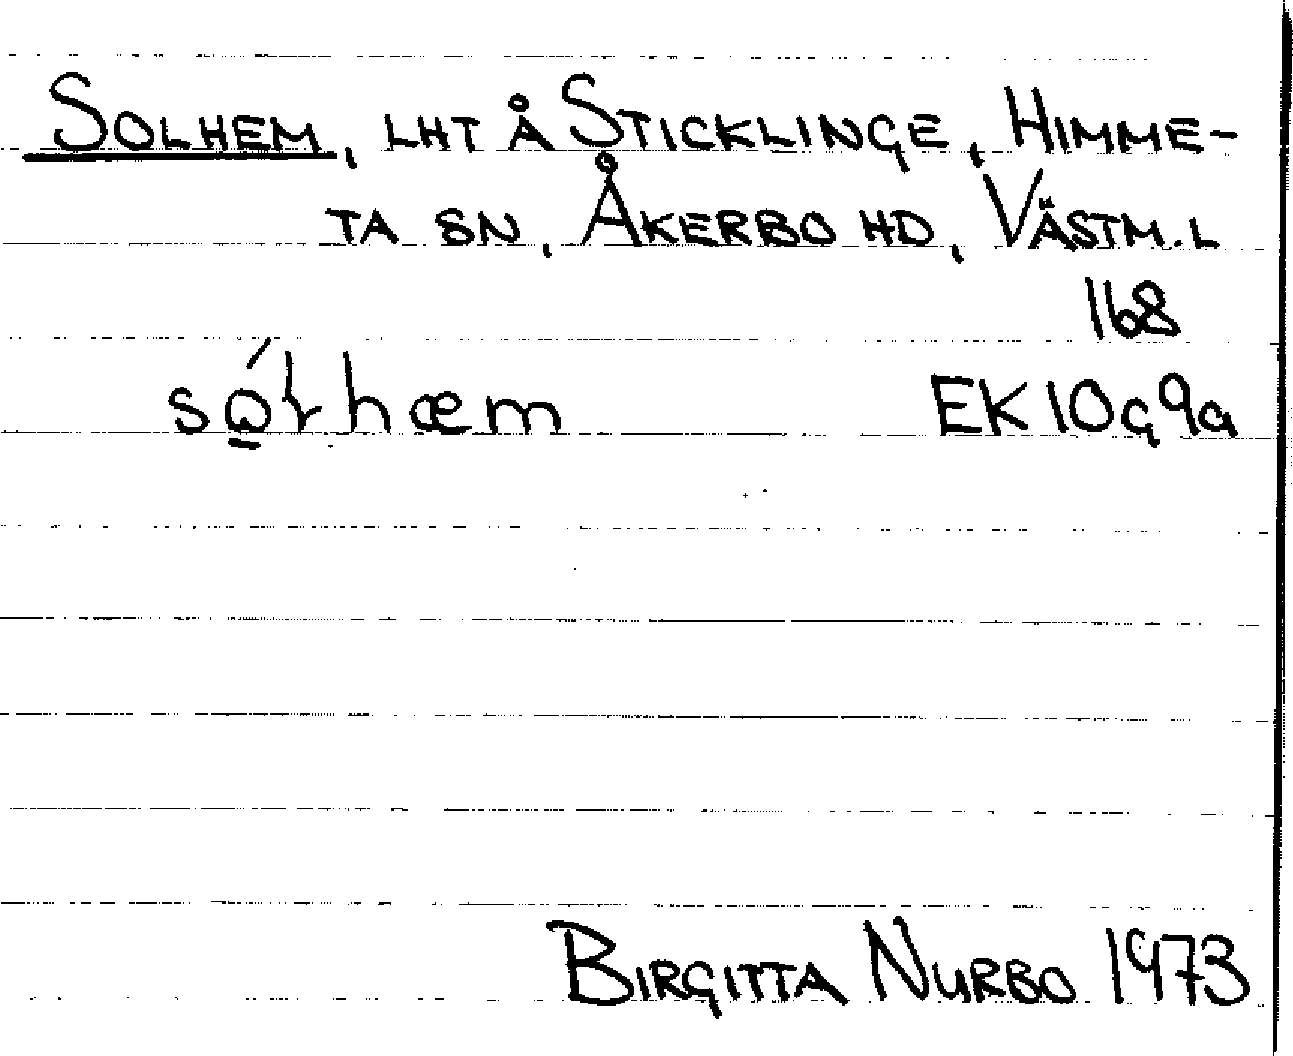 SOLHEM, LHT Å STICKLINGE, HIMME-
TA SN, ÅKERBO HD, VÄSTM. L
168
EK 10g9a
BIRGITTA NURBO 1973